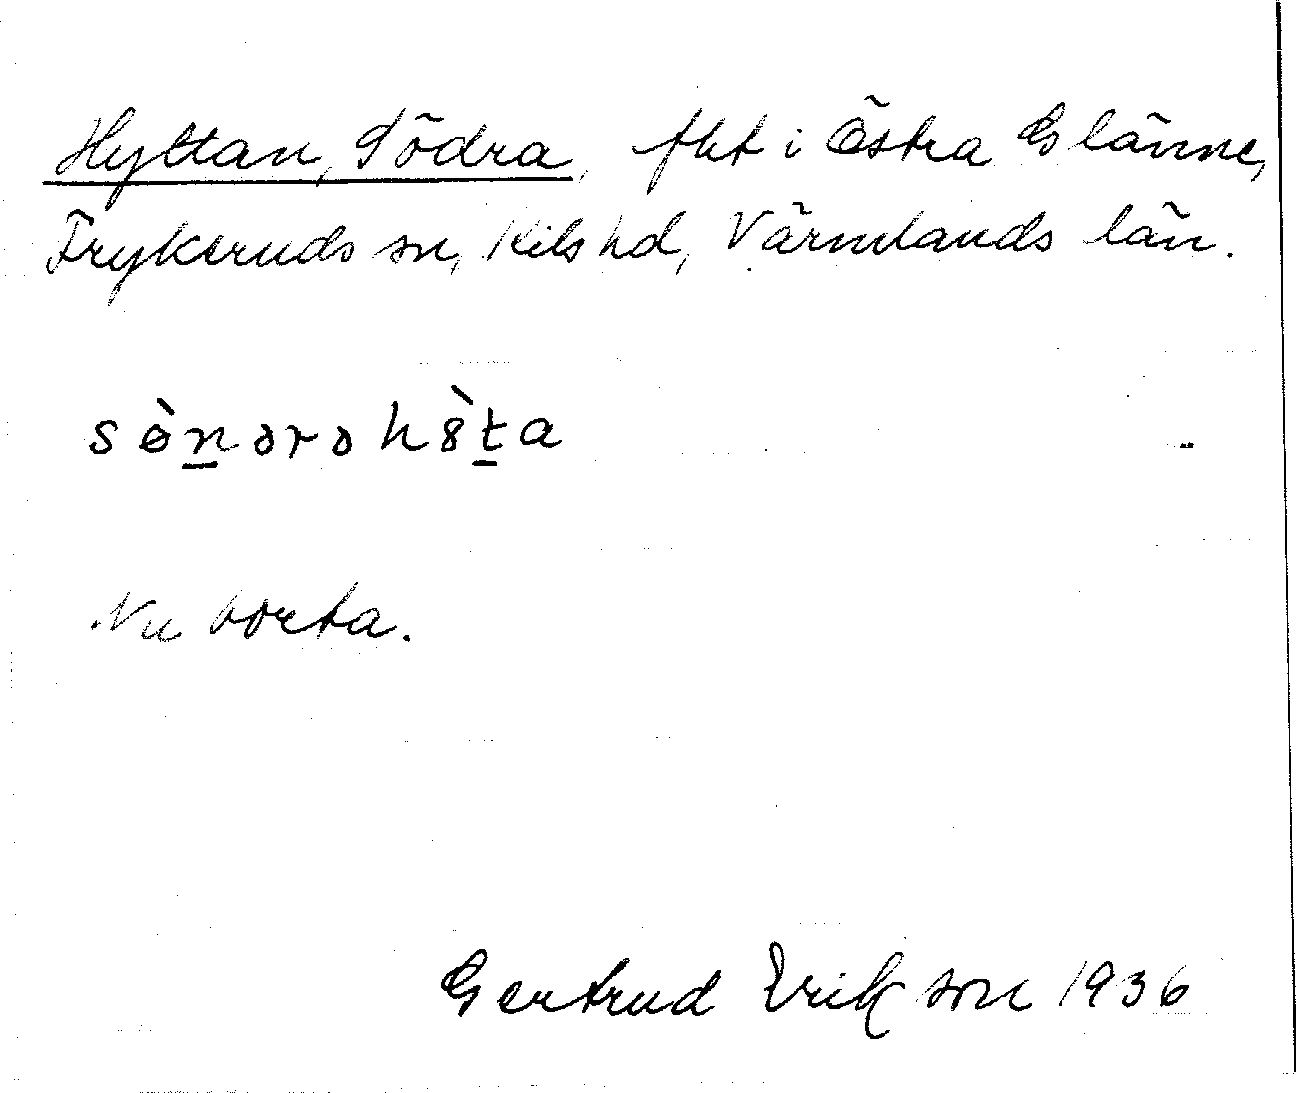 Hyttan, Södra, fht i Östra Glänne,
Frykeruds sn, Kils hd, Värmlands län.
sø̀n̲ərəh8̀t̲a
Nu borta.
Gertrud Erikson 1936